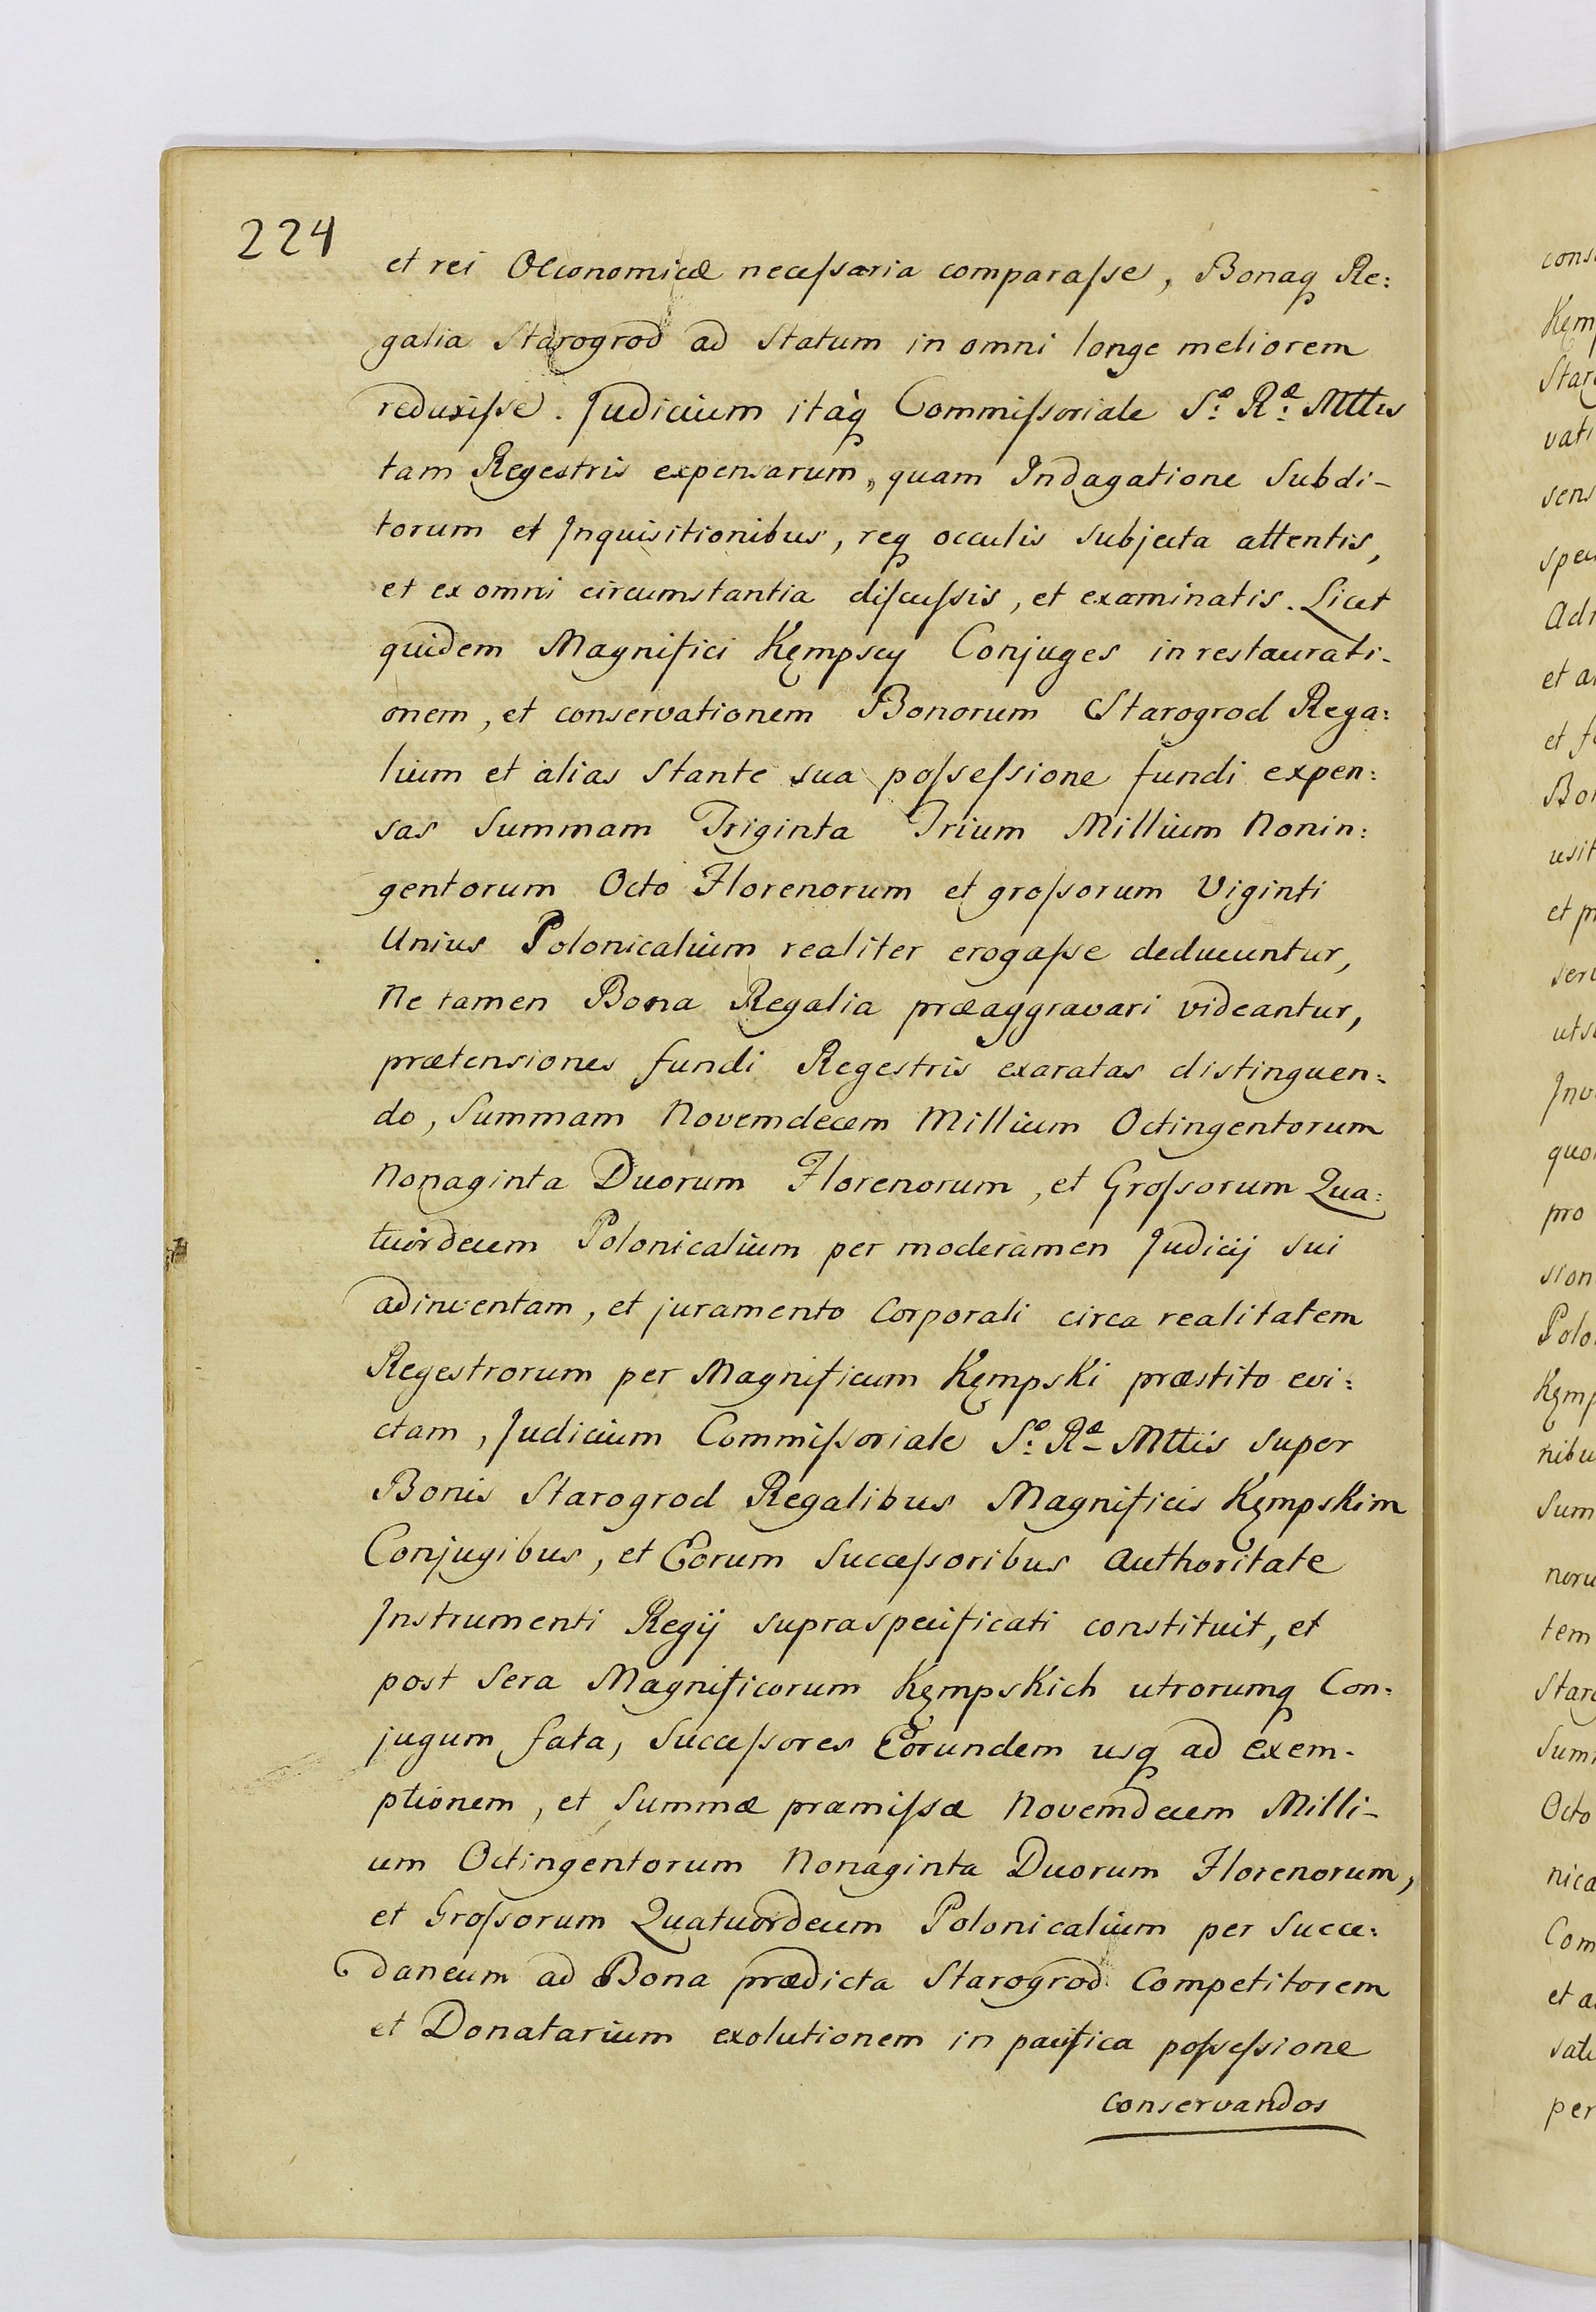 224
et rei Oeconomicæ neceſsaria comparaſse, Bonaq Re:
galia Starogrod ad Statum in omni longe meliorem
reduxiſse. Judicium itàq Commiſsoriale S:ᵃ R:ᵃ Mttis
tam Regestris expensarum, quam Indagatione Subdi-
torum et Inquisitionibus, req occulis Subjecta attentis,
et ex omni circumstantia diſcuſsis, et examinatis. Licet
quidem Magnifici Kęmpscy Conjuges in restaurati-
onem, et conservationem Bonorum Starogrod Rega:
lium et alias Stante sua poſseſsione fundi expen:
sas Summam Triginta Trium Millium Nonin:
gentorum Octo Florenorum et groſsorum Viginti
Unius Polonicalium realiter erogaſse deducuntur,
Ne tamen Bona Regalia præaggravari videantur,
prætensiones fundi Regestris exaratas distinguen:
do, Summam Novemdecem Millium Octingentorum
Nonaginta Duorum Florenorum, et Groſsorum Qua:
tuordecem Polonicalium per moderamen Judicij sui
adinventam, et juramento Corporali circa realitatem
Regestrorum per Magnificum Kęmpski præstito evi:
ctam, Judicium Commiſsoriale S:ᵃ R:ᵃ Mttis super
Bonis Starogrod Regalibus Magnificis Kęmpskim
Conjugibus, et Eorum Succeſsoribus Authoritate
Instrumenti Regij supraspecificati constituit, et
post Sera Magnificorum Kęmpskich utrorumq Con:
jugum fata, Succeſsores Eorundem usq ad Exem-
ptionem, et Summæ præmiſsæ Novemdecem Milli-
um Octingentorum Nonaginta Duorum Florenorum,
et Groſsorum Quatuordecem Polonicalium per Succe:
daneum ad Bona prædicta Starogrod Competitorem
et Donatarium exolutionem in pacifica poſseſsione
conservandos